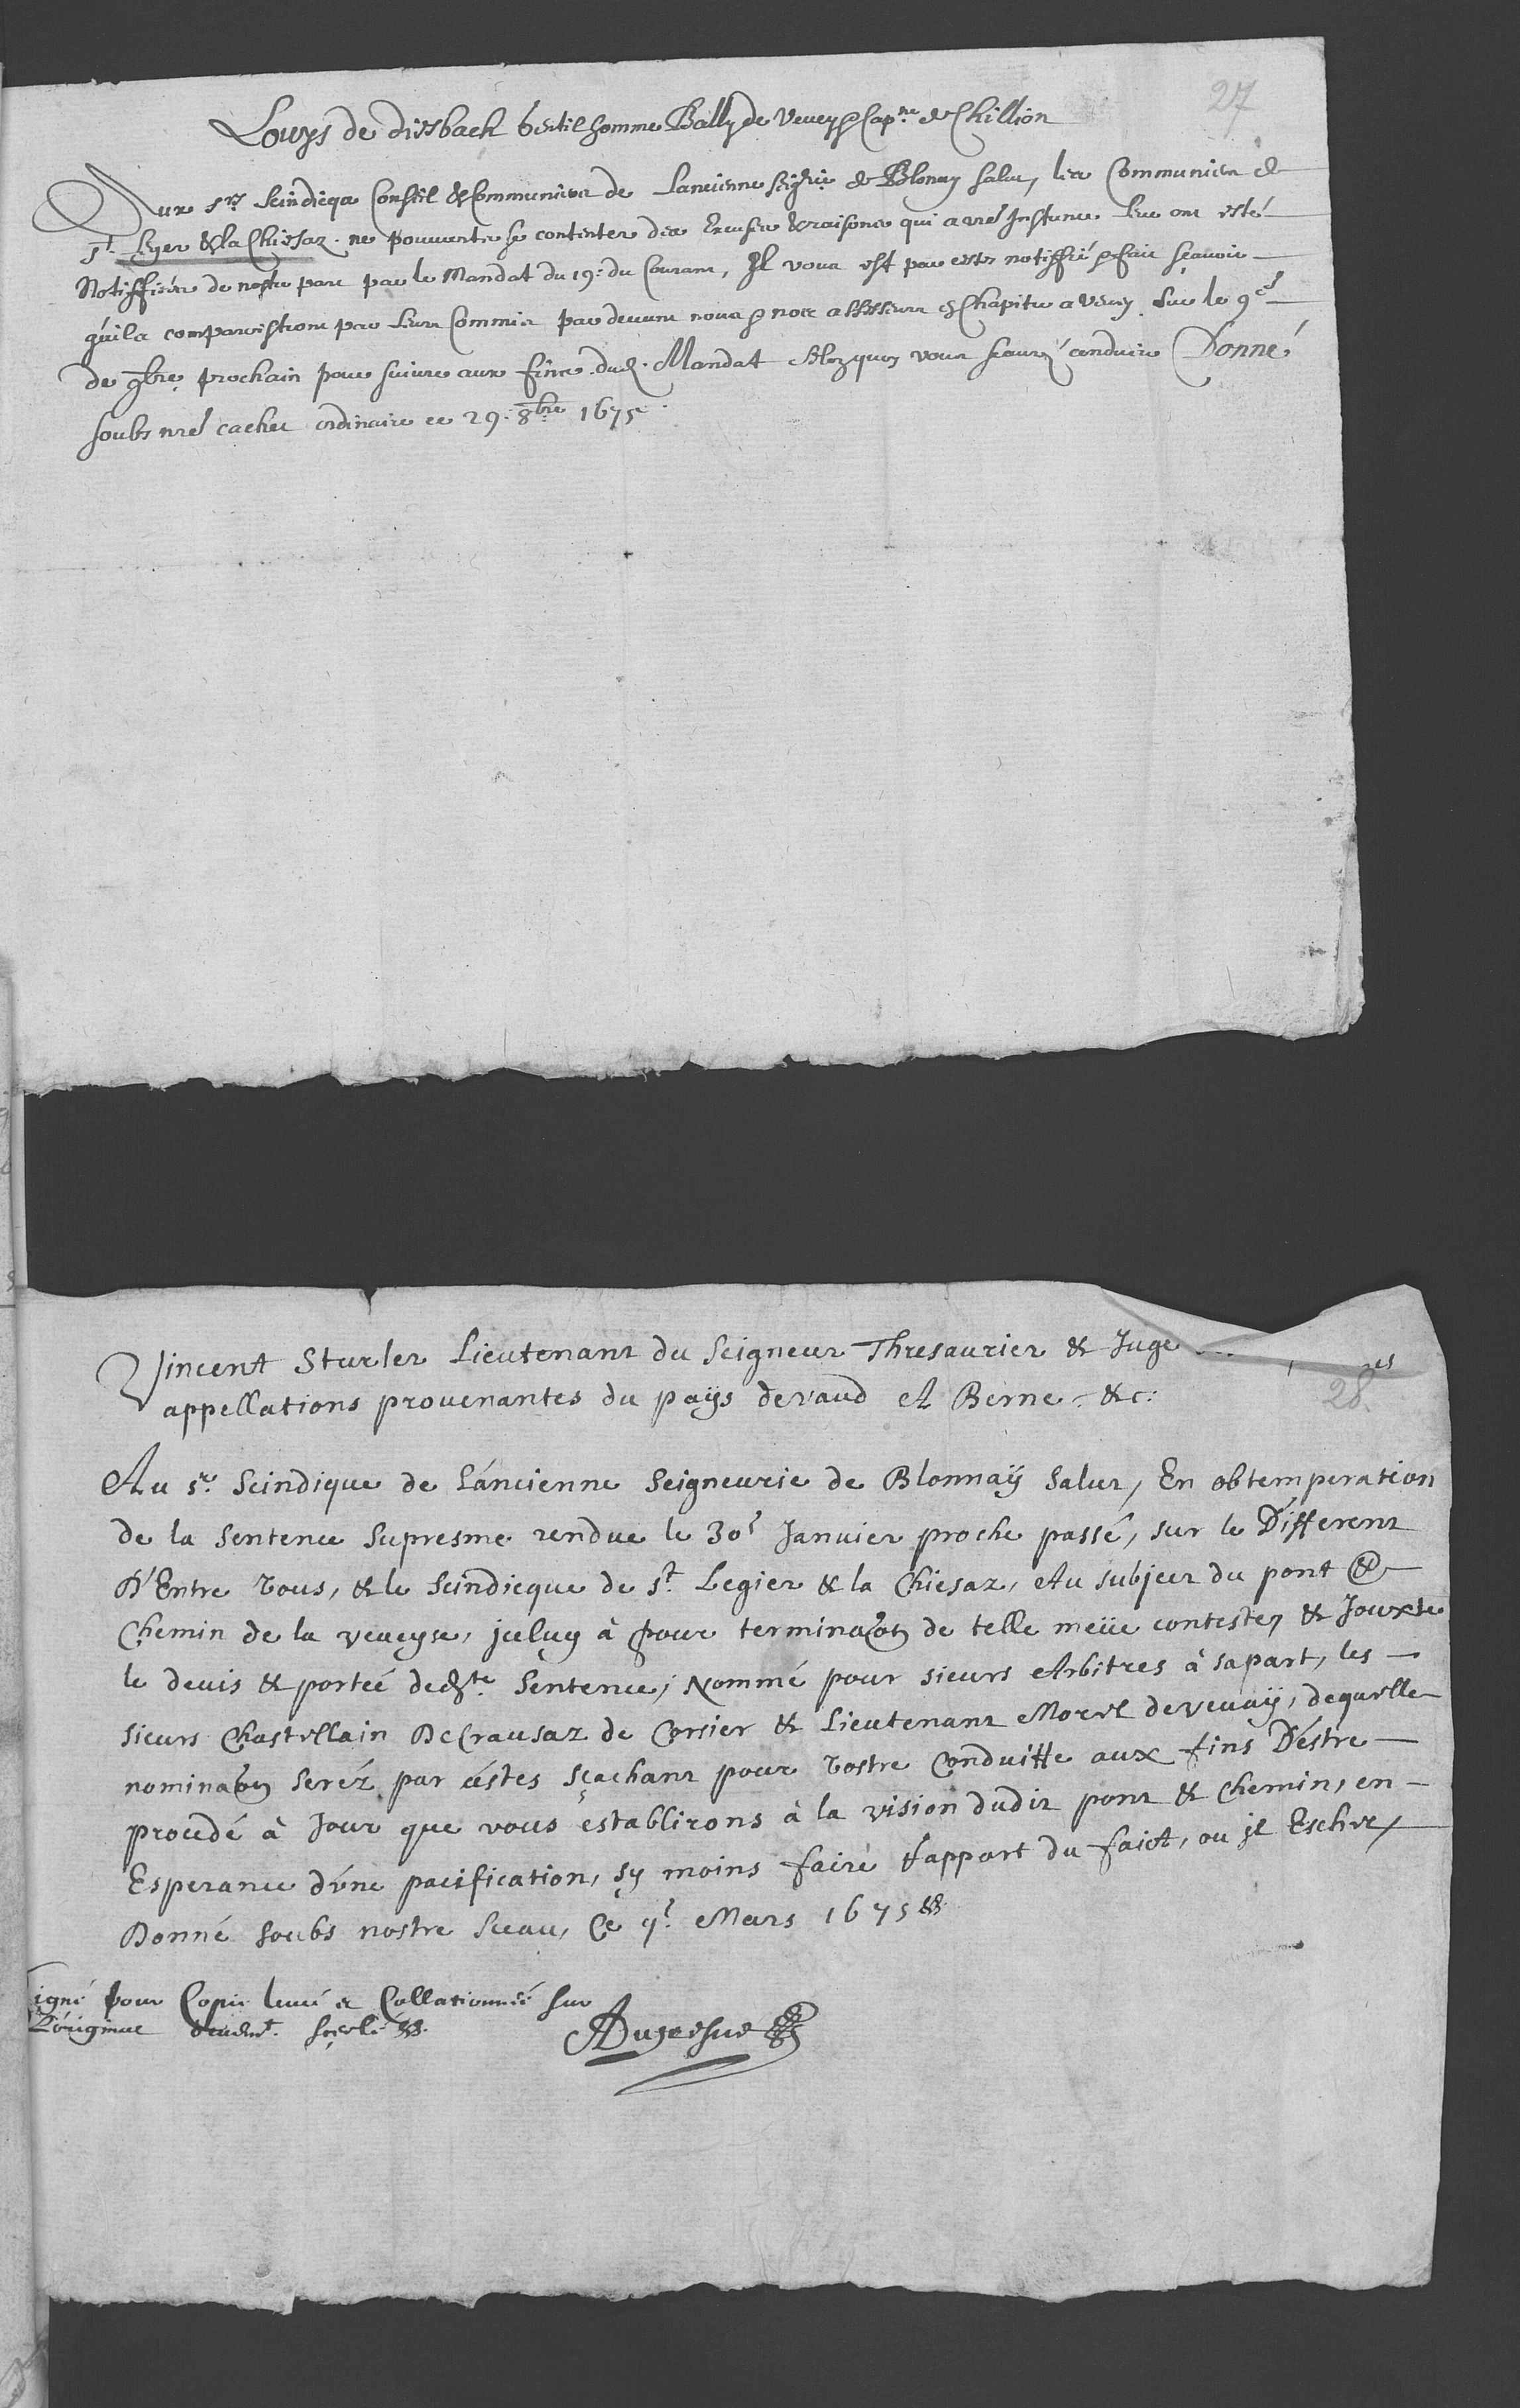 27
Louys de diesbach Gentilhomme Bally de Vevey & Cap.ne de Chillion
Aux s.rs Seindiqs Conseil & Communiers de Lancienne seigrie de Blonay salut, les Communiers de
s.t Legier & la Chiesaz. ne pouvants se contenter des Excuses & raisons qui a vre Instance leur ont esté
Notiffiées de nostre part par le Mandat du 19.e du Courant, Il vous est par cestes notiffié & fait sçavoir
qu'ils comparoistront par leurs Commis par devant nous & nos assesseurs & Chapitre a Vevey. sur le 9.e
de 9bre prochain pour suivre aux fins dud. Mandat selon quoy vous sçaurez conduire Donné
soubs nre cachet ordinaire ce 29. 8bre 1675.
28.
Vincent Sturler Lieutenant du Seigneur Thresaurier & Juge
appellations provenantes du paÿs devaud et Berne. &c:
Au s.r Scindique de L'áncienne Seigneurie de Blonnaÿ Salut, En obtemperation
de la Sentence Supresme rendue le 30.e Janvier proche passé, sur le Different
D'Entre Vous, & le Scindicque de s.t Legier & la Chiesaz, Au subject du pont &
Chemin de la veveyse, iceluy à pour termina͠on de telle meüe conteste, & Jouxte
le devis & porteé deditte Sentence, Nommé pour sieurs Arbitres à sapart, les
sieurs Chastellain DeCrausaz de Corsier & Lieutenant Morel deveuaÿ, dequelle
nomina͠on seréz par céstes sçachant pour Vostre Conduitte aux fins D'éstre
procedé à Jour que vous establirons à la vision dudit pont & Chemin, en
Esperance d'vne pacification, sy moins faire rapport du faict, ou jl Eschet,
Donné soubs nostre Sceau, Ce 9.e Mars 1675
Signé pour Copie levée et Collationnée sur
L'original deuem.t scellé